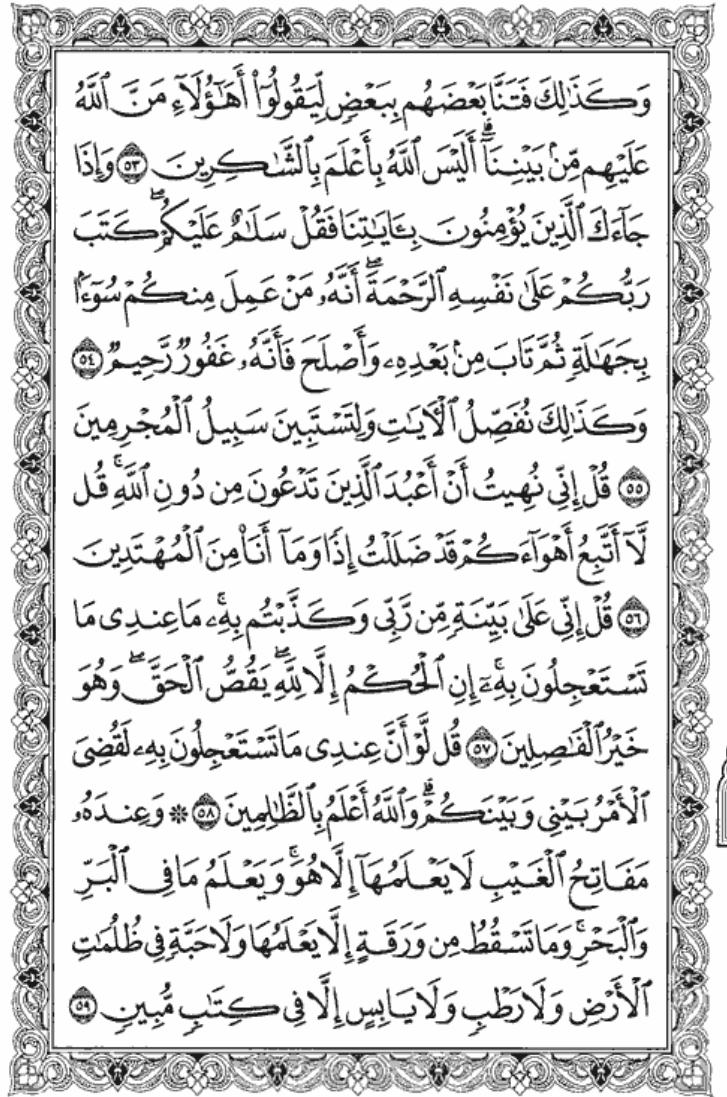 وَكَذَٰلِكَ فَتَنَّا بَعْضَهُم بِبَعْضٍ لِّيَقُولُوٓا۟ أَهَٰٓؤُلَآءِ مَنَّ ٱللَّهُ
عَلَيْهِم مِّنۢ بَيْنِنَآ ۗ أَلَيْسَ ٱللَّهُ بِأَعْلَمَ بِٱلشَّٰكِرِينَ ٥٣ وَإِذَا
جَآءَكَ ٱلَّذِينَ يُؤْمِنُونَ بِـَٔايَٰتِنَا فَقُلْ سَلَٰمٌ عَلَيْكُمْ ۖ كَتَبَ
رَبُّكُمْ عَلَىٰ نَفْسِهِ ٱلرَّحْمَةَ ۖ أَنَّهُۥ مَنْ عَمِلَ مِنكُمْ سُوٓءًۢا
بِجَهَٰلَةٍ ثُمَّ تَابَ مِنۢ بَعْدِهِۦ وَأَصْلَحَ فَأَنَّهُۥ غَفُورٌ رَّحِيمٌ ٥٤
وَكَذَٰلِكَ نُفَصِّلُ ٱلْـَٔايَٰتِ وَلِتَسْتَبِينَ سَبِيلُ ٱلْمُجْرِمِينَ
٥٥ قُلْ إِنِّى نُهِيتُ أَنْ أَعْبُدَ ٱلَّذِينَ تَدْعُونَ مِن دُونِ ٱللَّهِ ۚ قُل
لَّآ أَتَّبِعُ أَهْوَآءَكُمْ قَدْ ضَلَلْتُ إِذًا وَمَآ أَنَا۠ مِنَ ٱلْمُهْتَدِينَ
٥٦ قُلْ إِنِّى عَلَىٰ بَيِّنَةٍ مِّن رَّبِّى وَكَذَّبْتُم بِهِۦ ۚ مَا عِندِى مَا
تَسْتَعْجِلُونَ بِهِۦٓ ۚ إِنِ ٱلْحُكْمُ إِلَّا لِلَّهِ ۖ يَقُصُّ ٱلْحَقَّ ۖ وَهُوَ
خَيْرُ ٱلْفَٰصِلِينَ ٥٧ قُل لَّوْ أَنَّ عِندِى مَا تَسْتَعْجِلُونَ بِهِۦ لَقُضِىَ
ٱلْأَمْرُ بَيْنِى وَبَيْنَكُمْ ۗ وَٱللَّهُ أَعْلَمُ بِٱلظَّٰلِمِينَ ٥٨ ۞ وَعِندَهُۥ
مَفَاتِحُ ٱلْغَيْبِ لَا يَعْلَمُهَآ إِلَّا هُوَ ۚ وَيَعْلَمُ مَا فِى ٱلْبَرِّ
وَٱلْبَحْرِ ۚ وَمَا تَسْقُطُ مِن وَرَقَةٍ إِلَّا يَعْلَمُهَا وَلَا حَبَّةٍ فِى ظُلُمَٰتِ
ٱلْأَرْضِ وَلَا رَطْبٍ وَلَا يَابِسٍ إِلَّا فِى كِتَٰبٍ مُّبِينٍ ٥٩